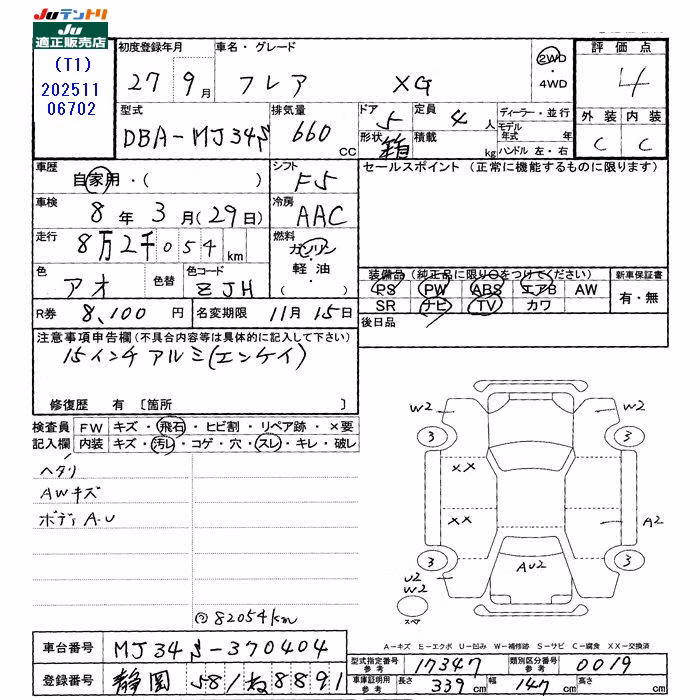 Juテントリ
Ju
適正販売店
(T1)
202511
06702
初度登録年月 27年 9月
車名・グレード フレア XG
2WD・4WD
評価点 4
外装 C 内装 C
型式 DBA-MJ34S
排気量 660 CC
ドア 5 形状 箱
定員 4人 積載 kg
ディーラー・並行
モデル年式 年
ハンドル 左・右
車歴 自家用・( )
シフト F5
セールスポイント (正常に機能するものに限ります)
車検 8年 3月(29日)
冷房 AAC
走行 8万2千054km
燃料 ガソリン・軽油・( )
色 アオ 色替 色コード ZJH
装備品 (純正品に限り○をつけてください)
PS PW ABS エアB AW
SR ナビ TV カワ
新車保証書 有・無
R券 8,100円 名変期限 11月15日
後日品
注意事項申告欄(不具合内容等は具体的に記入して下さい)
15インチアルミ(エンケイ)
修復歴 有 [箇所 ]
検査員 FW キズ・飛石・ヒビ割・リペア跡・×要
記入欄 内装 キズ・汚レ・コゲ・穴・スレ・キレ・破レ
ヘタリ
AWキズ
ボディA.U
82054km
W2 W2
3 3
XX
XX A2
3 3
U2 AU2
W2
スペア
A-キズ E-エクボ U-凹み W-補修跡 S-サビ C-腐食 XX-交換済
車台番号 MJ34S-370404
型式指定番号 参考 17347 類別区分番号 参考 0019
登録番号 静岡 581 ね 8891
車庫証明用 参考 長さ 339cm 幅 147cm 高さ cm